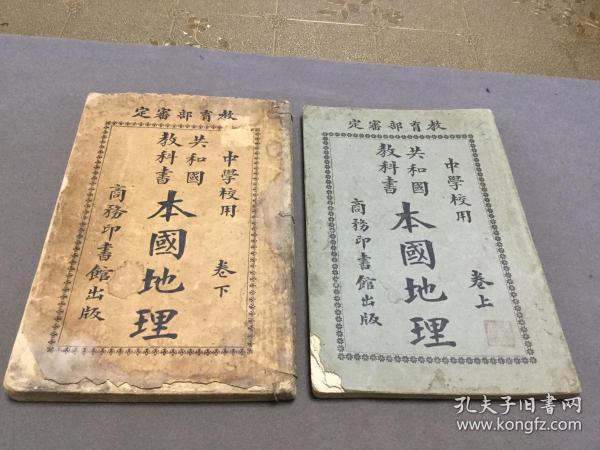 教育部審定
中學校用
共和國
教科書
本國地理
卷下
商務印書館出版
教育部審定
中學校用
共和國
教科書
本國地理
卷上
商務印書館出版
孔夫子旧书网
www.kongfz.com